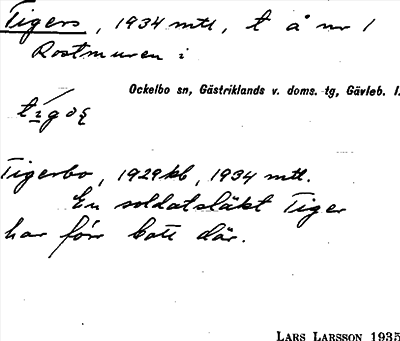 Tigers, 1934 mtl, t å nr 1
Rostmuren i
Ockelbo sn, Gästriklands v. doms. tg, Gävleb. l.
Tigerbo, 1929 kb, 1934 mtl.
En soldatsläkt Tiger
har förr bott där.
LARS LARSSON 1935